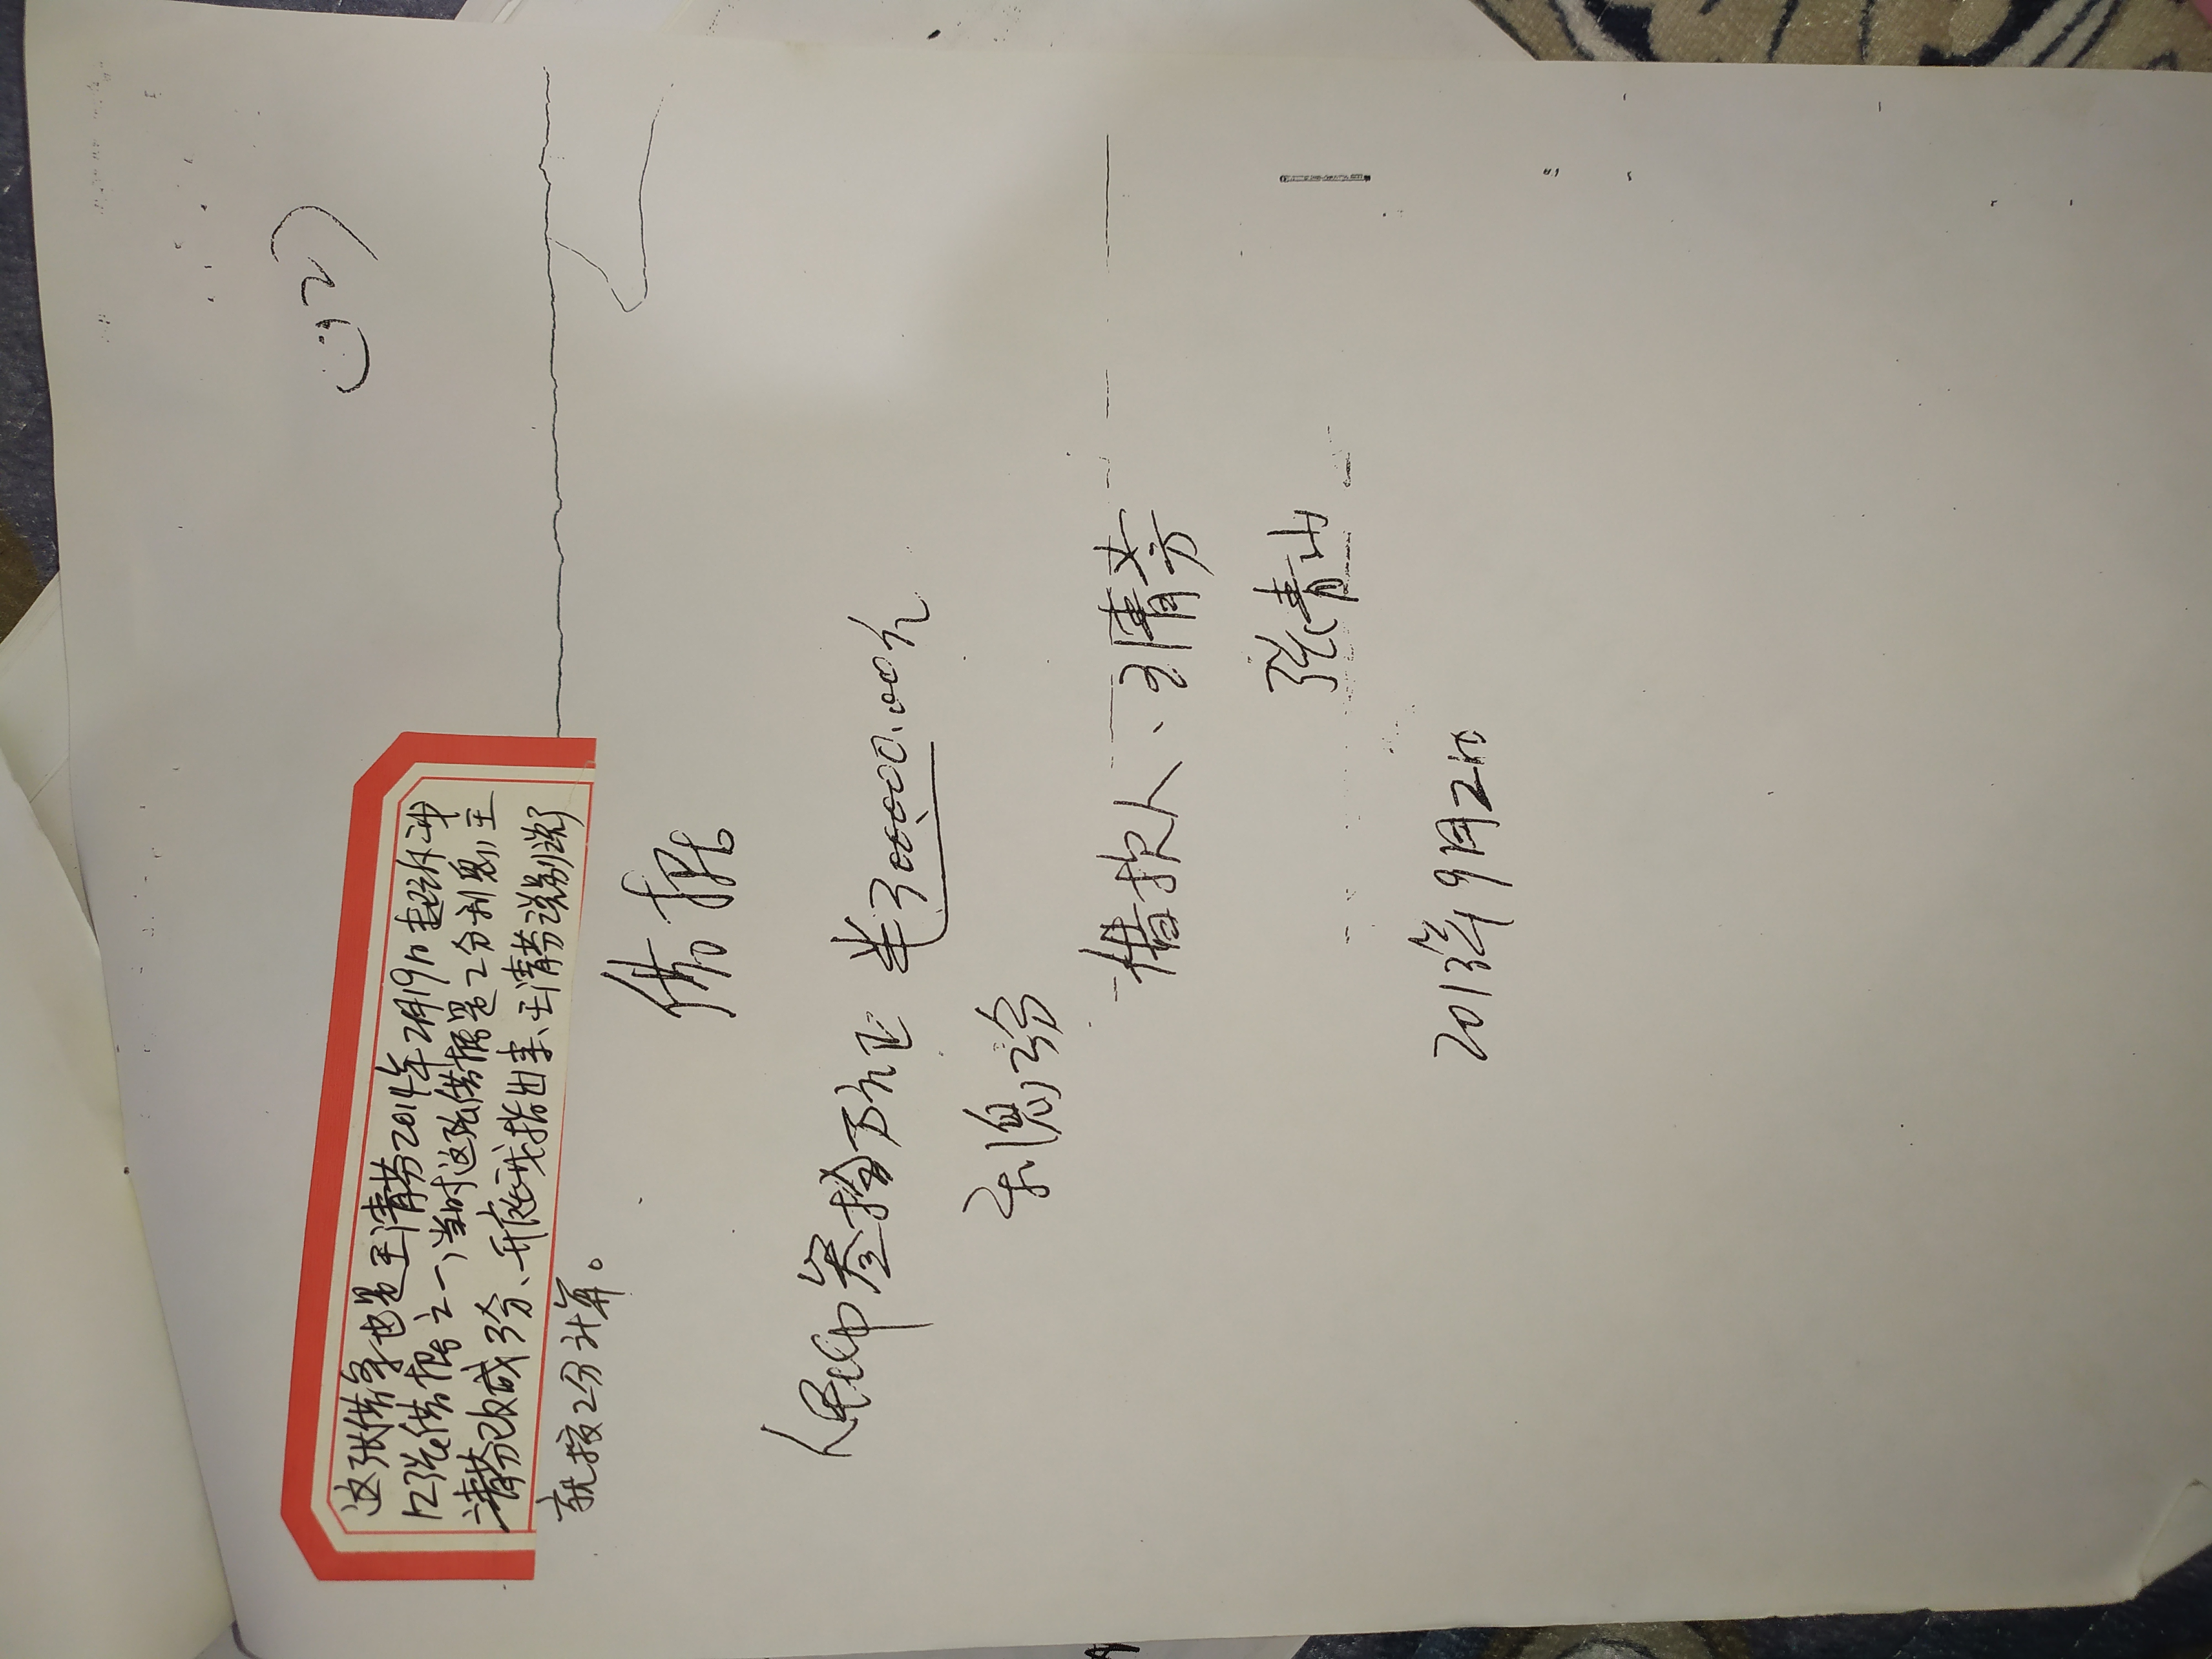 (12)
这张借条也是王清芬2014年2月19日起诉我
12张借据之一,当时这张借据是2分利息,王
清芬改成3分、开庭我指出来、王清芬说别说了
就按2分计算。
借据
人民币叁拾万元正 ¥300000.00元
利息3分
借款人、王清芳
张青山
2013年9月2日